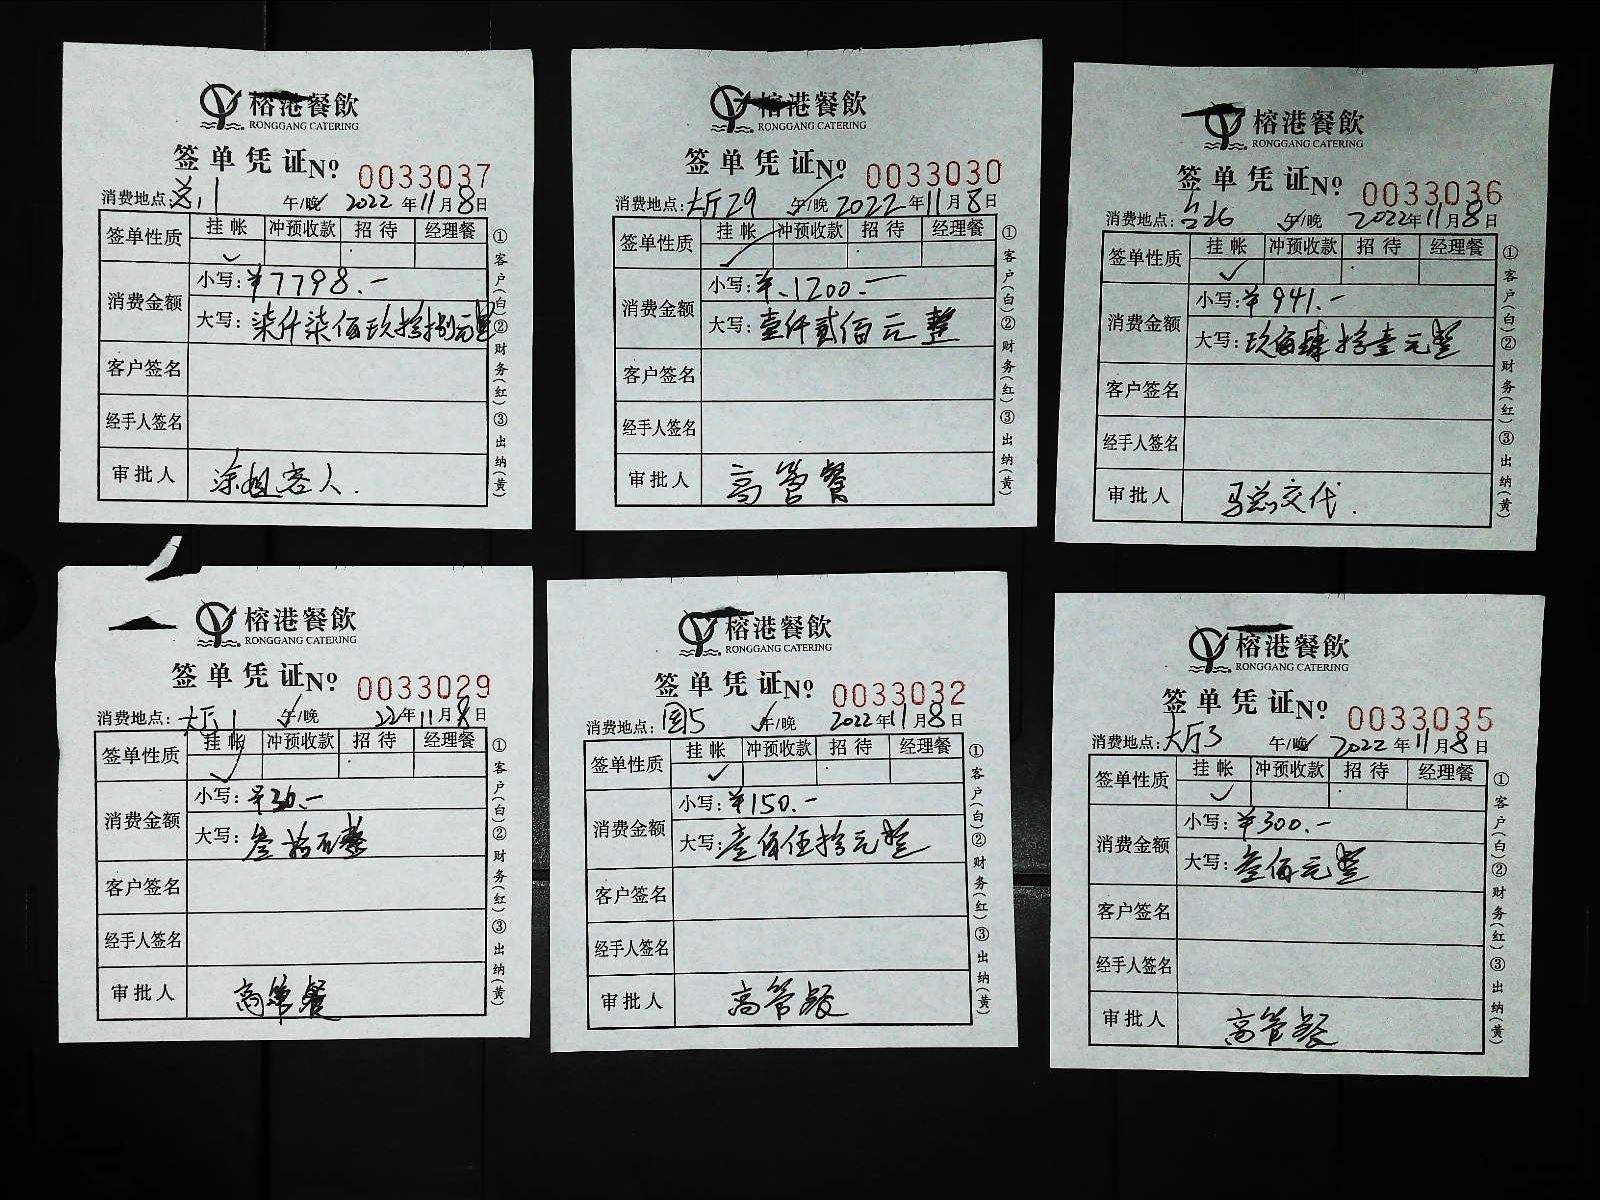 榕港餐飲
RONGGANG CATERING
签单凭证 No 0033037
消费地点: 总1 午/晚 2022年11月8日
签单性质 挂帐 冲预收款 招待 经理餐
✓
消费金额 小写: ¥7798.-
大写: 柒仟柒佰玖拾捌元整
客户签名
经手人签名
审批人 涂旭客人.
①客户(白)②财务(红)③出纳(黄)
榕港餐飲
RONGGANG CATERING
签单凭证 No 0033030
消费地点: 大厅29 午/晚 2022年11月8日
签单性质 挂帐 冲预收款 招待 经理餐
✓
消费金额 小写: ¥1200.-
大写: 壹仟贰佰元整
客户签名
经手人签名
审批人 高管餐
①客户(白)②财务(红)③出纳(黄)
榕港餐飲
RONGGANG CATERING
签单凭证 No 0033036
消费地点: 台北 午/晚 2022年11月8日
签单性质 挂帐 冲预收款 招待 经理餐
✓
消费金额 小写: ¥941.-
大写: 玖佰肆拾壹元整
客户签名
经手人签名
审批人 马总交代.
①客户(白)②财务(红)③出纳(黄)
榕港餐飲
RONGGANG CATERING
签单凭证 No 0033029
消费地点: 大厅1 午/晚 22年11月8日
签单性质 挂帐 冲预收款 招待 经理餐
✓
消费金额 小写: ¥30.-
大写: 叁拾元整
客户签名
经手人签名
审批人 高管餐
①客户(白)②财务(红)③出纳(黄)
榕港餐飲
RONGGANG CATERING
签单凭证 No 0033032
消费地点: 园5 午/晚 2022年11月8日
签单性质 挂帐 冲预收款 招待 经理餐
✓
消费金额 小写: ¥150.-
大写: 壹佰伍拾元整
客户签名
经手人签名
审批人 高管餐
①客户(白)②财务(红)③出纳(黄)
榕港餐飲
RONGGANG CATERING
签单凭证 No 0033035
消费地点: 大厅3 午/晚 2022年11月8日
签单性质 挂帐 冲预收款 招待 经理餐
✓
消费金额 小写: ¥300.-
大写: 叁佰元整
客户签名
经手人签名
审批人 高管餐
①客户(白)②财务(红)③出纳(黄)